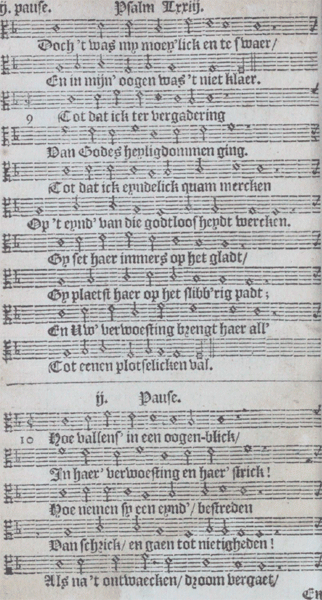 ij. pause. Psalm Lxxiij.
Doch 't was my moey'lick en te swaer/
En in mijn' oogen was 't niet klaer.
9 Tot dat ick ter vergadering
Van Godes heyligdommen ging.
Tot dat ick eyndelick quam mercken
Op 't eynd' van die godtloosheydt wercken.
Gy set haer immers op het gladt/
Gy plaetst haer op het slibb'rig padt;
En Uw' verwoesting brengt haer all'
Tot eenen plotselicken val.
ij. Pause.
10 Hoe vallens' in een oogen-blick/
In haer' verwoesting en haer' strick!
Hoe nemen sy een eynd'/ bestreden
Van schrick/ en gaen tot nietigheden!
Als na 't ontwaecken/ droom vergaet/
En